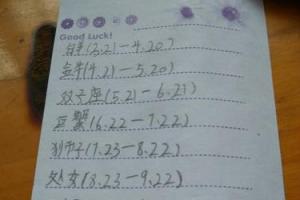 Good Luck!
白羊(3.21-4.20)
金牛(4.21)-5.20
双子座(5.21)-6.21)
巨蟹(6.22-7.22)
狮子(7.23-8.22)
处女(8.23-9.22)